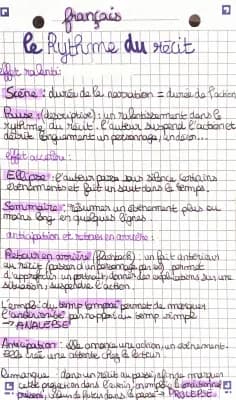 français
le Rythme du récit
effet ralenti:
Scène : durée de la narration = durée de l'action
Pause : (descriptive) : un ralentissement dans le
rythme du récit. l'auteur suspend l'action et
décrit longuement un personnage, un décor...
effet accéléré :
Ellipse : l'auteur passe sous silence certains
événements et fait un saut dans le temps.
Sommaire : résumer un événement plus ou
moins long en quelques lignes.
anticipation et retours en arrière :
Retour en arrière (flashback) : un fait antérieur
au récit (passé d'un personnage par ex) permet
d'apporter un portrait, donner des explications sur une
situation, suspendre l'action.
L'emploi du temps composé permet de marquer
l'antériorité par rapport au temps simple
→ ANALEPSE
Anticipation : elle annonce une action, un événement.
Elle crée une attente chez le lecteur.
Remarque : dans un récit au passé, afin de marquer
cette projection dans l'avenir, on emploie le conditionnel
présent, valeur de futur dans le passé → PROLEPSE